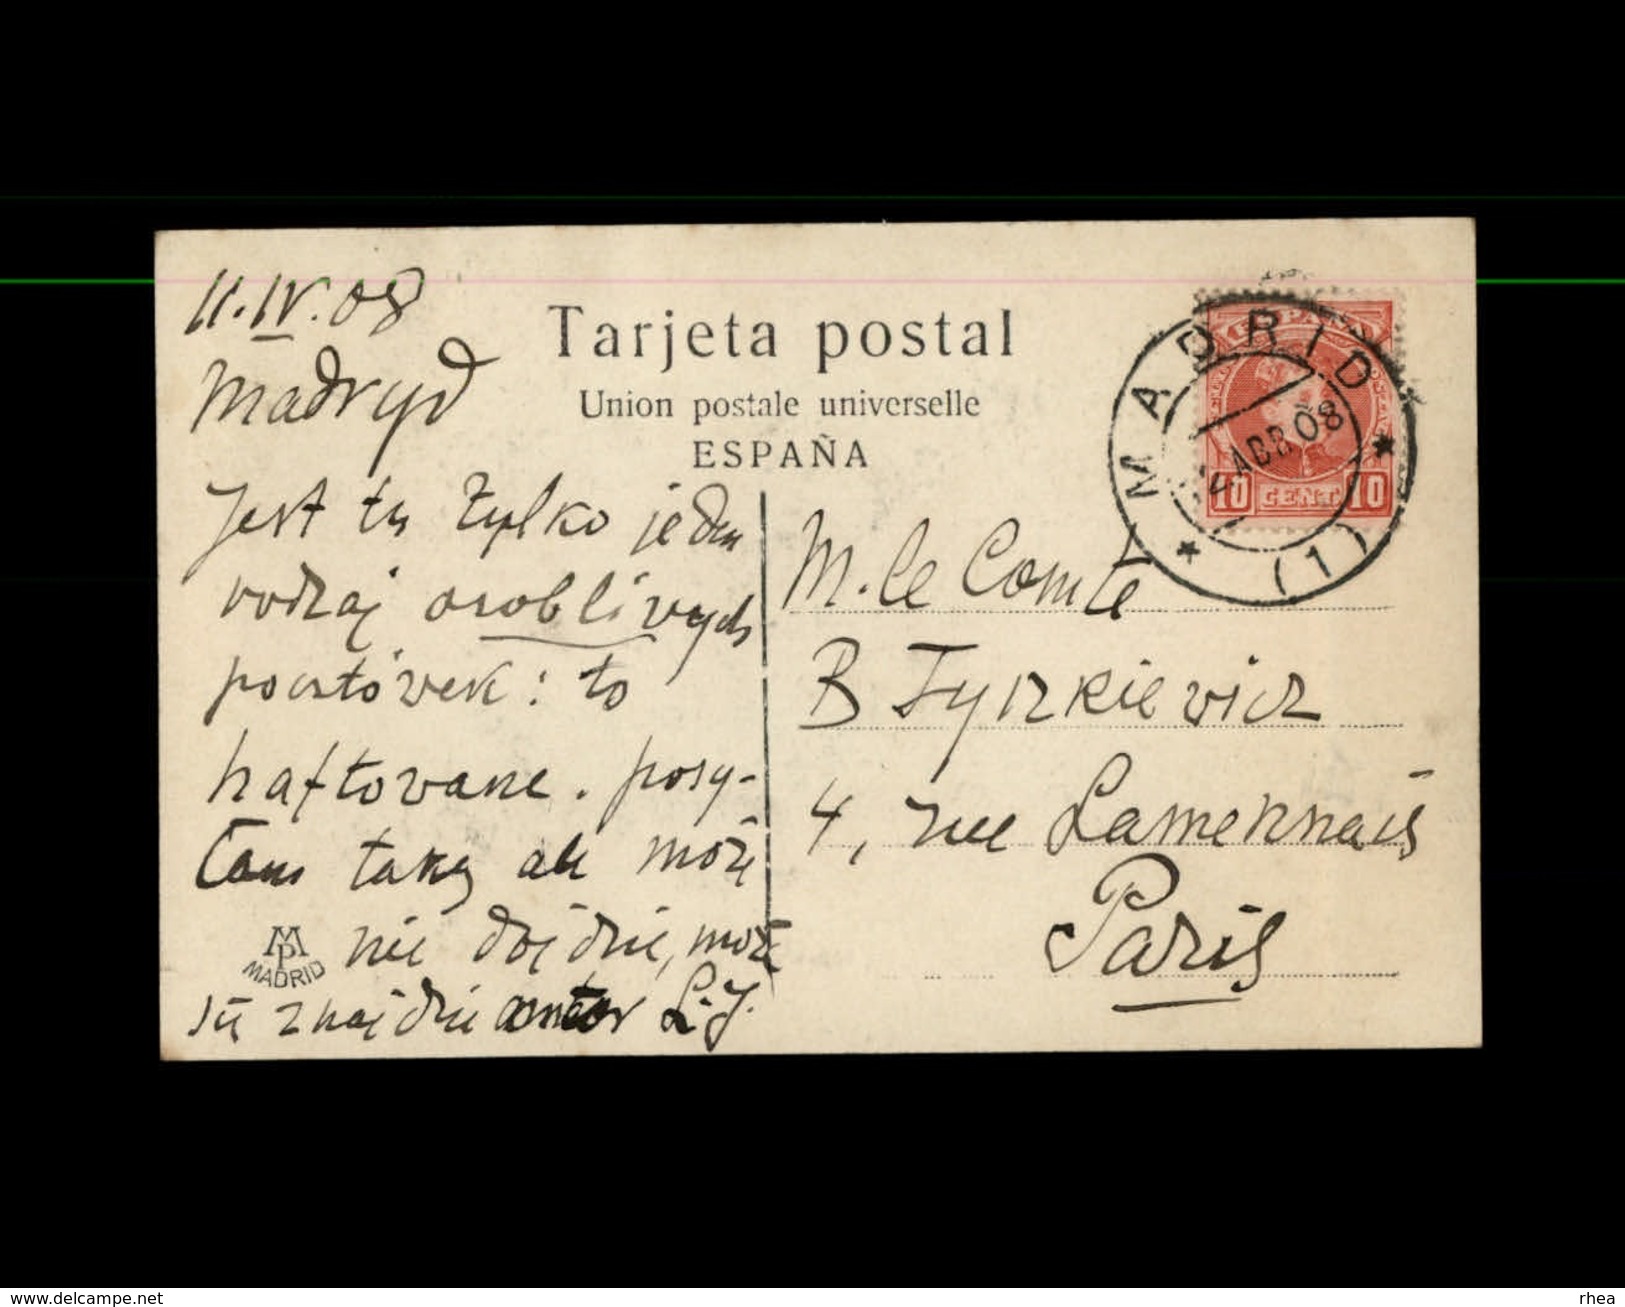 11.IV.08
Madryd
Jest tu tylko jeden
rodzaj osobliwych
pocztówek: to
haftowane. posy-
łam taką ale może
nie dojdzie, może
się znajdzie amator L.J.
Tarjeta postal
Union postale universelle
ESPAÑA
MADRID
ABR 08
(1)
ESPAÑA
10 CENT. 10
M. le Comte
B Tyszkiewicz
4, rue Lamennais
Paris
MP
MADRID
www.delcampe.net
rhea